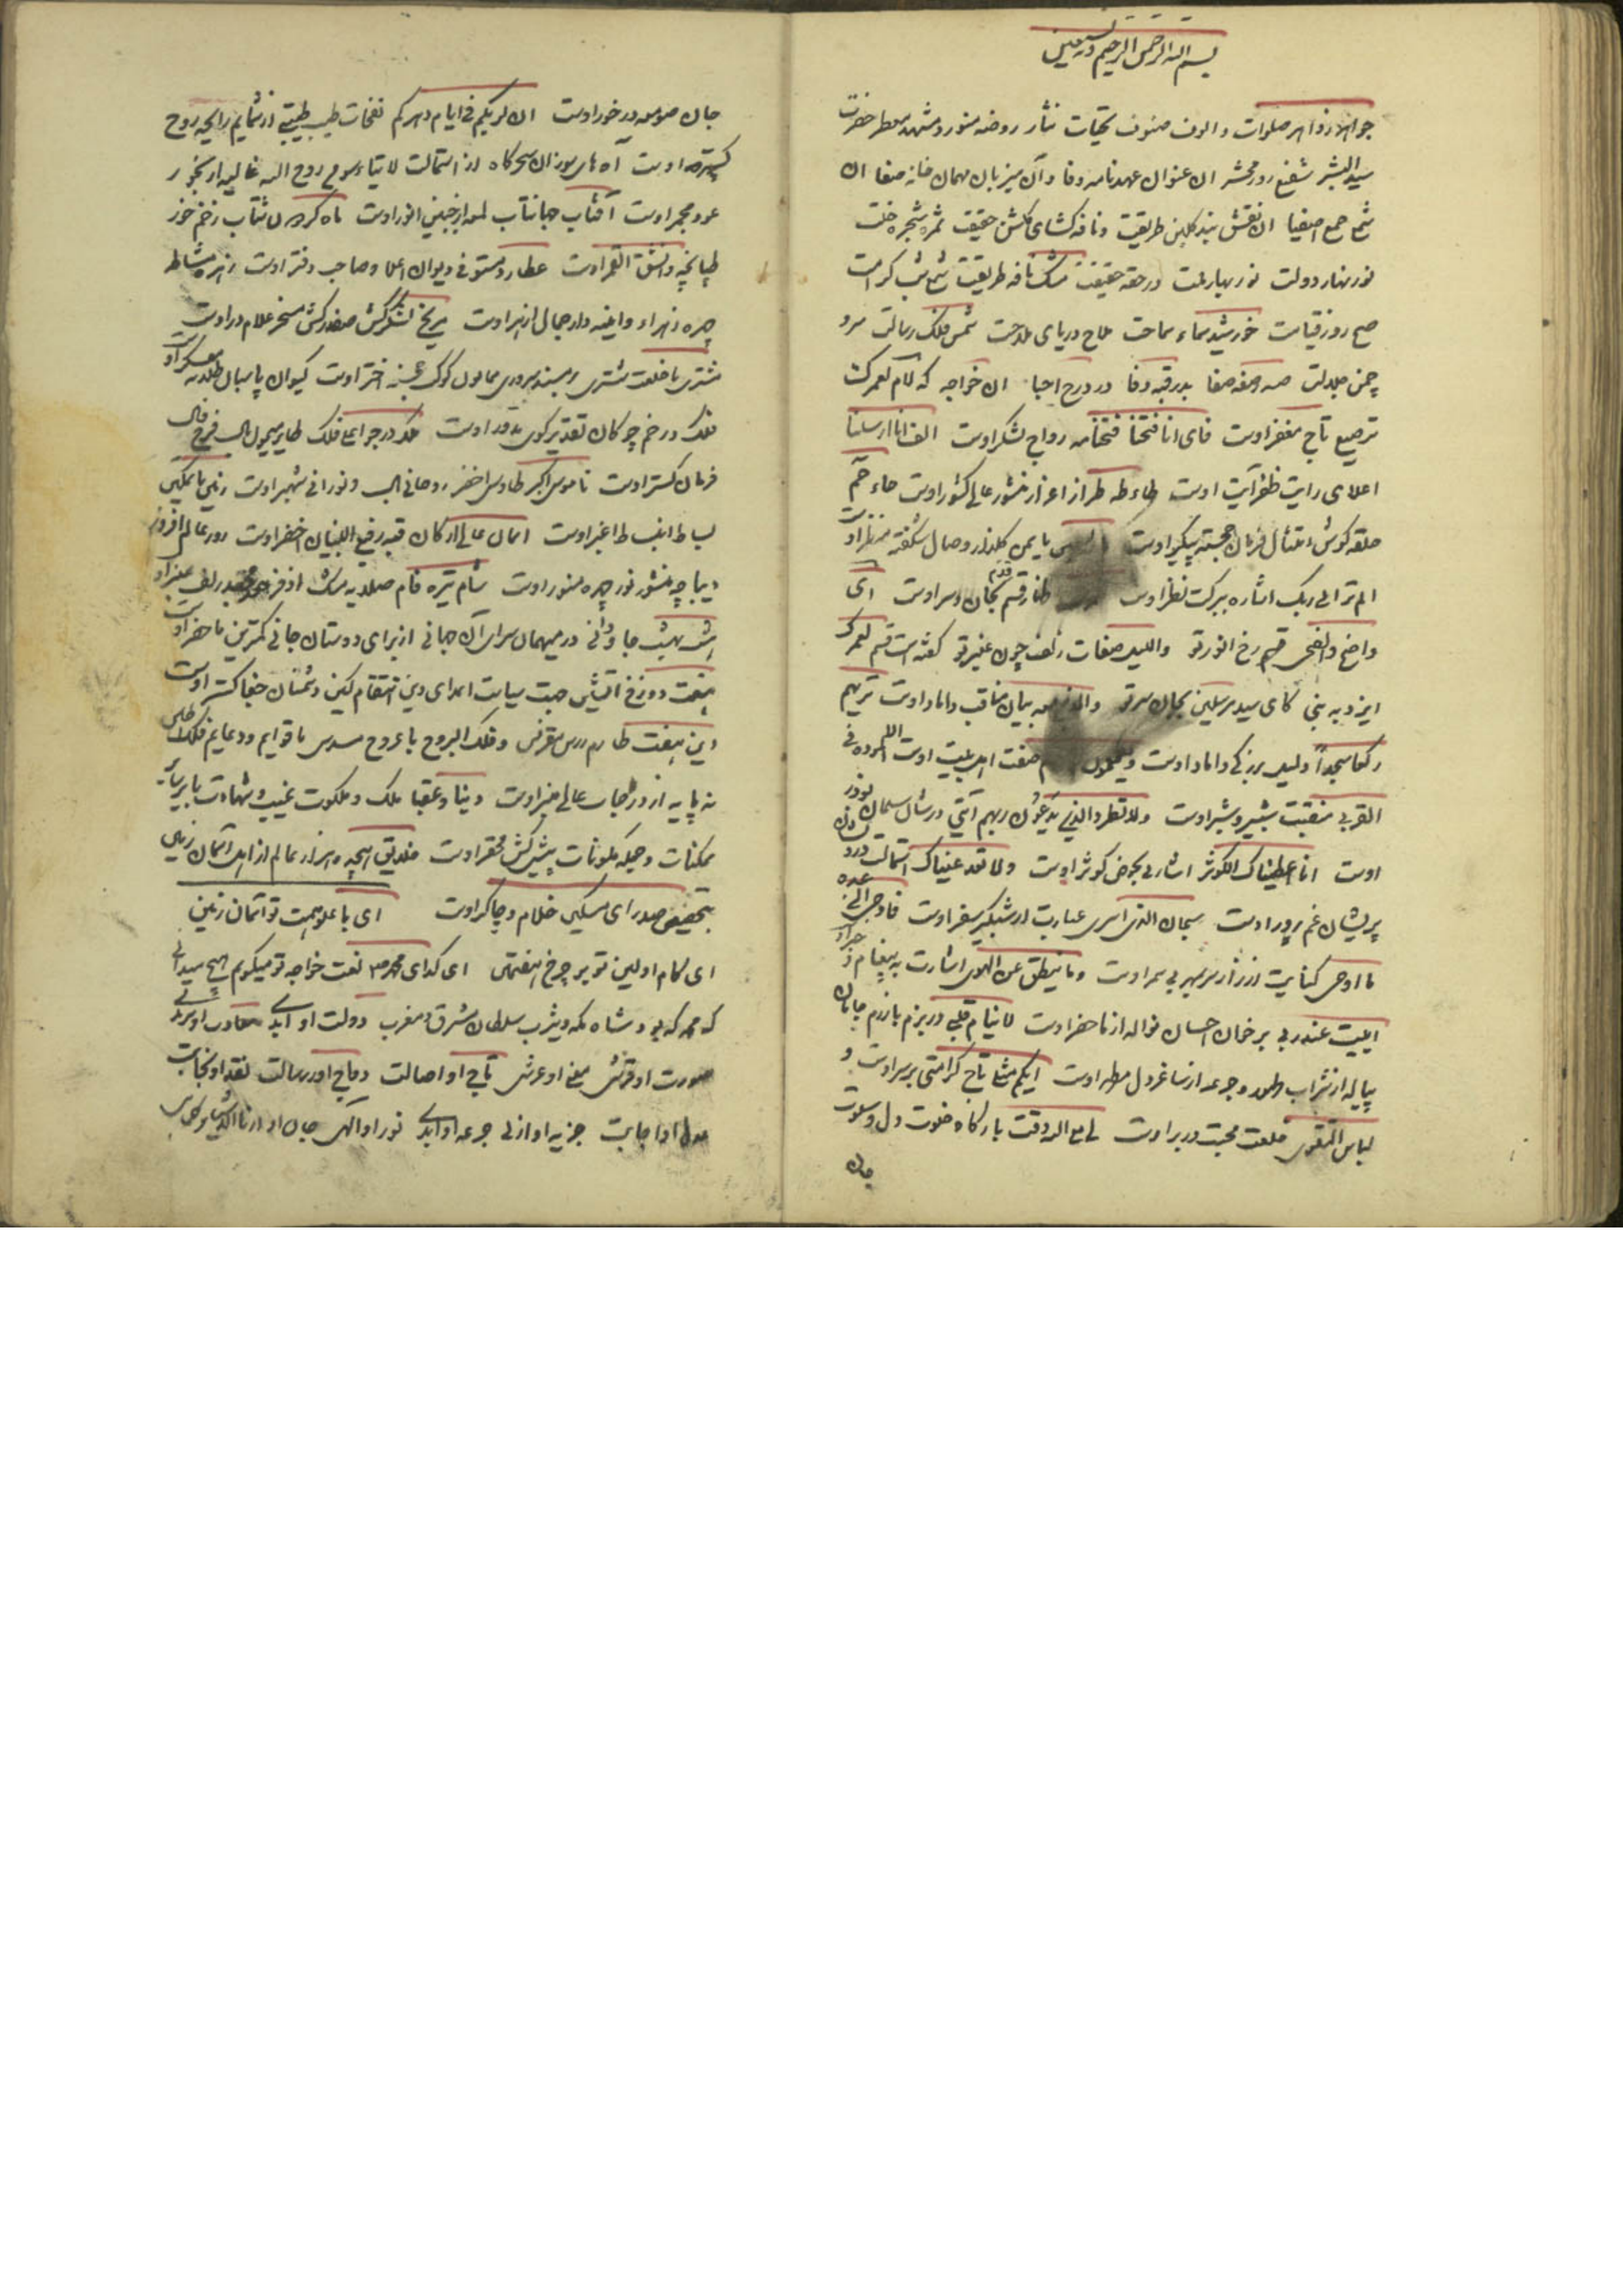 بسم الله الرحمن الرحیم و به نستعین
جواهر زواهر صلوات و الوف صنوف تحیات نثار روضه منور و مشهد معطر حضرت
سید البشر شفیع روز محشر ان عنوان عهدنامه وفا و آن میزبان مهمان خانه صفا ان
شمع جمع اصفیا ان نقش بند کلبن طریقت و نافه کشای کلشن حقیقت ثمره شجره خلت
نور نهار دولت نور بهار ملت در حقه حقیقت مشک نافه طریقت شمع شب کرامت
صبح روز قیامت خورشید سماء سماحت ملاح دریای ملاحت شمس فلک رسالت سرو
چمن جلالت صفه صفا بدرقه وفا در درج احبا ان خواجه که لام لعمرک
ترصیع تاج مغفر اوست فای انا فتحنا فتحنامه رواج لشکر اوست الف انا ارسلنا
اعلای رایت ظفر آیت اوست طاء طه طراز اعزاز منشور عالی کشور اوست حاء حم
حلقه کوش امتثال فرمان خجسته پیکر اوست یا یمن کلزار وصال شکفته منظر اوست
الم تر الی ربک اشاره ببرکت نظر اوست طغار قسم بجان و سر اوست ای
واضح والضحی قسم رخ انور تو واللیل صفات زلف چون عنبر تو کفته است قسم لعمرک
ایزد به نبی کای سید مرسلین بجان سر تو بیان مناقب داماد اوست تریهم
رکعا سجدا دلیل بزرکی داماد اوست صفت اهل بیت اوست الا المودة فی
القربی منقبت شبیر و شبر اوست ولا تطرد الذین یدعون ربهم آیتی در شان سلمان و بوذر
اوست انا اعطیناک الکوثر اشارلی بحوض کوثر اوست ولا تعد عیناک استمالت درد
پریشان غم پرور اوست سبحان الذی اسری عبارت از شبکیر سفر اوست فاوحی الی عبده
ما اوحی کنایت از راز سر بمهر بی سمر اوست وما ینطق عن الهوی اشارت به پیغام
ابیت عند ربی بر خوان احسان نواله از ماحضر اوست لا ینام قلبی در بزم بازرم جانان
پیاله از شراب طهور و جرعه از ساغر دل مطهر اوست ایکم مثلی تاج کرامتی بر سر اوست و
لباس التقوی خلعت محبت در بر اوست لی مع الله وقت بارکاه خلوت دل و سلوت
جان
جان صومعه در خور اوست ان لربکم فی ایام دهرکم نفحات طیب طیبتی از شمایم رایحه روح
کستر اوست آه های سوزان سحرکاه از استمالت لا تیاسو من روح الله غالیه از بخور
عود مجمر اوست آفتاب جهانتاب لمعه از جبین انور اوست ماه کردون شتاب زخم خور
طپانچه وانشق القمر اوست عطارد مستوفی دیوان اعلا و صاحب دفتر اوست زهره مشاطه
چهره زهرا و واینه دار جمال ازهر اوست مریخ لشکرکش صفدرکش مسخر غلام در اوست
مشتری با خلعت مشتری بر مسند سروری همایون کوکب اختر اوست کیوان پاسبان معسکر اوست
فلک در خم چوکان تقدیر کوی اوست ملک در جو اعلی فلک طایر میمون بال فرخ فال
فرمان کستر اوست ناموس اکبر طاوس اخضر روحانی بال و نورانی شهپر اوست زمین با تمکین
بساط انبساط اغبر اوست اسمان عالی ارکان قبه رفیع البنیان اخضر اوست روز عالم افروز
دیباچه منشور نور چهره منور اوست شام تیره فام مشک اذفر زلف معنبر اوست
هشت بهشت جاودانی در میهمان سرای آن جهانی از برای دوستان جانی کمترین ماحضر اوست
هفت دوزخ اتشین جهت سیاست اعدای دین انتقام کین دشمنان جفا کستر اوست
این هفت طارم مقرنس و فلک البروج با عروج مسدس با قوایم و دعایم فلک اطلس
نه پایه از درجات عالی منبر اوست دنیا و عقبا ملک و ملکوت غیب و شهادت با بر سایر
ممکنات و جمله مکونات پیشکش محقر اوست خلایق هیجده هزار عالم از اهل آسمان زمین
بتخصیص صدرای مسکین غلام و چاکر اوست ای با علو همت تو آسمان زمین
ای کام اولین تو بر چرخ هفتمین ای کدای محمد نعت خواجه تو میکویم هیچ میدانی
که محمد که بود شاه مکه و یثرب سلطان مشرق و مغرب دولت او ابدی سعادت او سرمدی
صورت او فرش معنی او عرش تاج او اصالت دواج او رسالت نقد او نجابت
او اجابت جزیه او ازلی جرعه او ابدی نور او آلهی جان او